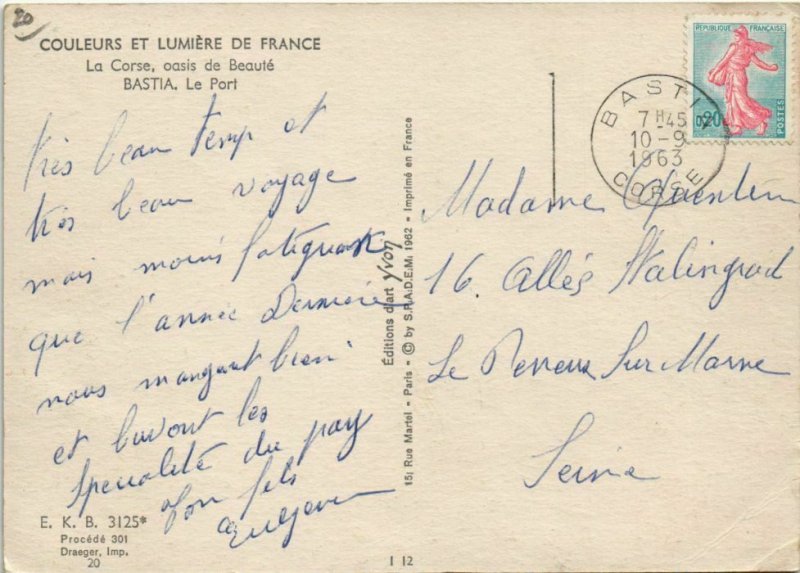 20
COULEURS ET LUMIÈRE DE FRANCE
La Corse, oasis de Beauté
BASTIA. Le Port
très beau temp et
très beau voyage
mais moins fatiguant
que l'année dernière
nous mangeont bien
et buvont les
spécialité du pay
ton fils
E. K. B. 3125*
Procédé 301
Draeger, Imp.
20
Éditions d'art Yvon
15, Rue Martel - Paris - © by S.P.A.D.E.M. 1962 - Imprimé en France
I 12
REPUBLIQUE FRANÇAISE
0,20
POSTES
BASTIA
7H45
10-9
1963
CORSE
Madame Quentin
16. Allés Stalingrad
Le Perreux Sur Marne
Seine